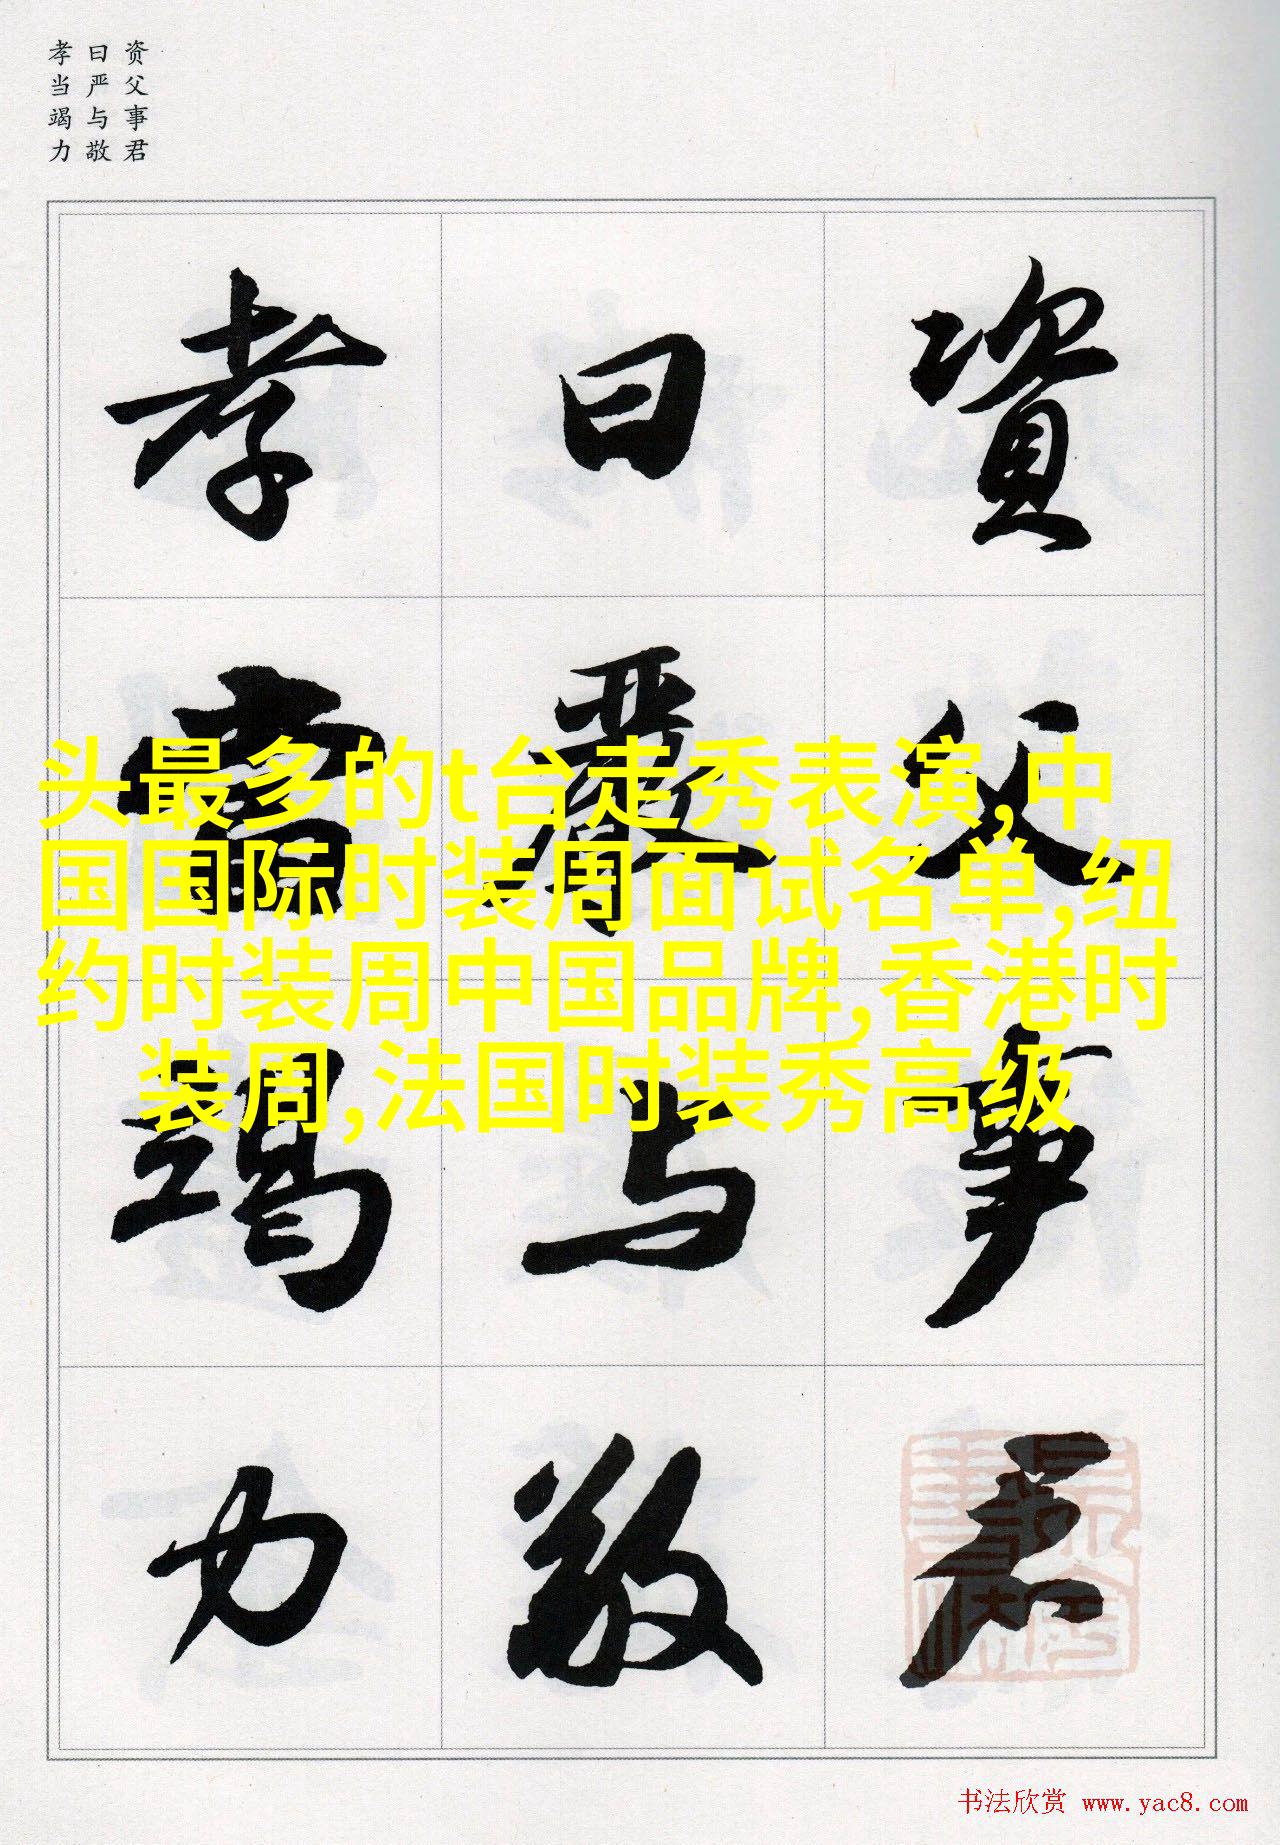 资父事君
曰严与敬
孝当竭力
資父事君
曰嚴与敬
孝當竭力
头最多的t台走秀表演,中
国国际时装周面试名单,纽
约时装周中国品牌,香港时
装周,法国时装秀高级
书法欣赏 www.yac8.com